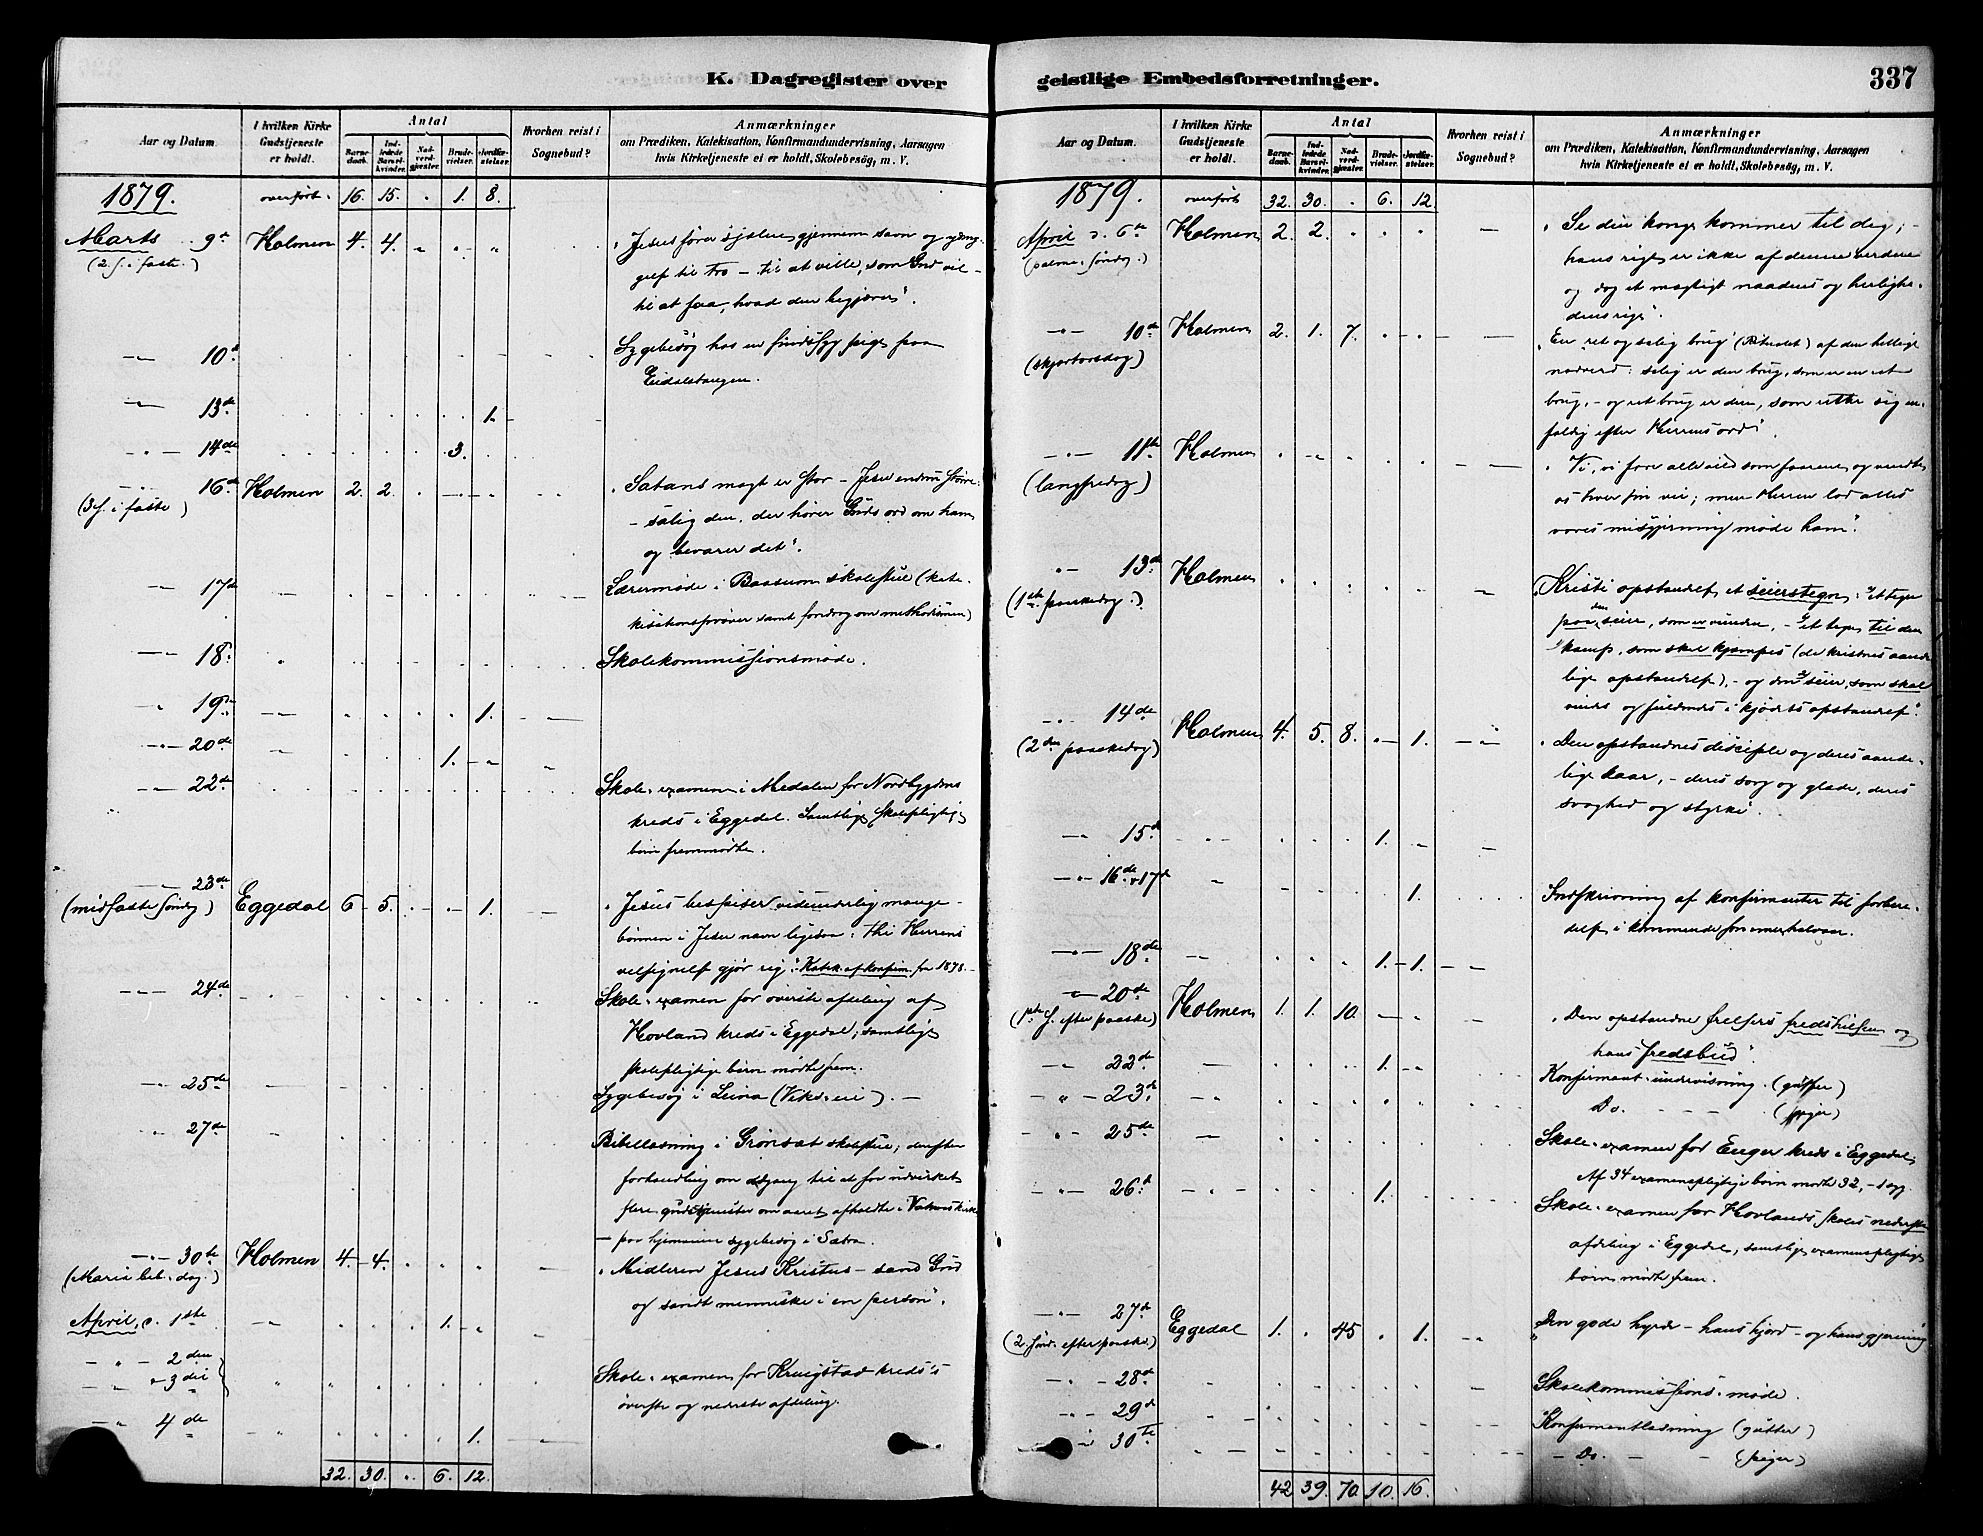 K. Dagregister over
Aar og Datum.
I hvilken Kirke Gudstjeneste er holdt.
Antal
Barnedaab.
Indledede Barselkvinder.
Nadverdgjester.
Brudevielser.
Jordfæstelser.
Hvorhen reist i Sognebud?
Anmærkninger
om Prædiken, Katekisation, Konfirmandundervisning, Aarsagen
hvis Kirketjeneste ei er holdt, Skolebesøg, m. V.
1879. overført. 16. 15. . 1. 8.
Marts 9de Holmen 4. 4. „Jesus fører sjælene gjennem savn og
(2 s. i faste.) til tro – til at ville, som Gud vil –
til at faa, hvad den begjærer".
10de Sygebesøg hos en sindssyg pige paa
Eidalstangen.
13de 1.
14de 3.
16de Holmen 2. 2. „Satans magt er stor – Jesu endnu større:
(3 s. i faste) – salig den, der hører Guds ord om ham
og bevarer det".
17de Lærermøde i Baasum skolestue (kate-
kisationsprøver samt foredrag om methodismen)
18. Skolekommissionsmøde.
19de 1.
20de 1.
22de Skole-examen i Medalen for Nordbygdens
kreds i Eggedal. Samtlige skolepligtige
børn fremmødte.
23de
(midfaste søndag) Eggedal 6 5. 1. „Jesus bespiser vidunderlig mange –
bønnen i Jesu navn ligesaa: thi Herrens
velsignelse gjør rig". Katek. af konfirm. for 1878.
24de Skole-examen for øverste afdeling af
Hovland kreds i Eggedal; samtlige
skolepligtige børn mødte frem.
25de Sygebesøg i
27de Bibellæsning i Grønsæt skolestue; derefter
forhandling om adgang til at faa udvirket
flere gudstjenester om aaret afholdte i kirke
– paa hjemveien sygebesøg i Sætra.
30te Holmen 4 4. „Midleren Jesus Kristus – sand Gud
(Mariæ beb. dag.) og sandt menneske i en person".
April, d. 1ste 1.
2den
3die Skole-examen for Kruigstad kreds's
øverste og nederste afdeling.
4de 1.
32. 30. . 6. 12.
geistlige Embedsforretninger.
337
Aar og Datum.
I hvilken Kirke Gudstjeneste er holdt.
Antal
Barnedaab.
Indledede Barselkvinder.
Nadverdgjester.
Brudevielser.
Jordfæstelser.
Hvorhen reist i Sognebud?
Anmærkninger
om Prædiken, Katekisation, Konfirmandundervisning, Aarsagen
hvis Kirketjeneste ei er holdt, Skolebesøg, m. V.
1879. overført 32. 30. . 6. 12.
April d. 6te Holmen 2. 2. „Se din konge kommer til dig; –
(palme-søndag.) hans rige er ikke af denne verden
og dog et mægtigt naadens og herlighe-
dens rige".
10de Holmen 2. 1. 7. „En ret og salig brug (Ritualet) af den hellige
(skjærtorsdag) nadverd: salig er den brug, som er en ret
brug, – og ret brug er den, som retter sig en-
foldig efter Herrens ord".
11te Holmen „Vi, vi fore alle vild som faarene og vendte
(langfredag) os hver sin vei; men Herren lod alles
vores misgjerning møde ham".
13de Holmen „Kristi opstandelse et seierstegn: et tegn
(1ste paaskedag.) paa den seier, som er vunden, – et tegn til den
kamp, som skal kjæmpes (de kristnes aande-
lige opstandelse), – og den seier, som skal
vindes og fuldendes i kjødets opstandelse".
14de Holmen 4. 5. 8. 1. „Den opstandnes disciple og deres aande-
(2den paaskedag) lige kaar, – deres sorg og glæde, deres
svaghed og styrke".
15de 1.
16de + 17de 1. Indskrivning af konfirmanter til forbere-
delse i kommende sommerhalvaar.
18de 1. 1.
20de Holmen 1. 1. 10. „Den opstandne frelsers fredshilsen og
(1ste s. efter paaske) hans fredsbud".
22de 1. Konfirmant-undervisning. (gutter)
23de Do. (piger)
25de Skole-examen for Enger kreds i Eggedal;
Af 34 examenspligtige børn mødte 32, – 1 syg.
26de 1. Skole-examen for Hovlands skoles nederste
afdeling i Eggedal, samtlige examenspligtige
børn mødte frem.
27de Eggedal 1. . 45 . 1. „Den gode hyrde – hans hjord – og hans gjerning"
(2. sønd. efter paaske)
28de Skolekommissions-møde.
29de Konfirmantlæsning (gutter)
30te Do. (piger)
42 39. 70. 10. 16.